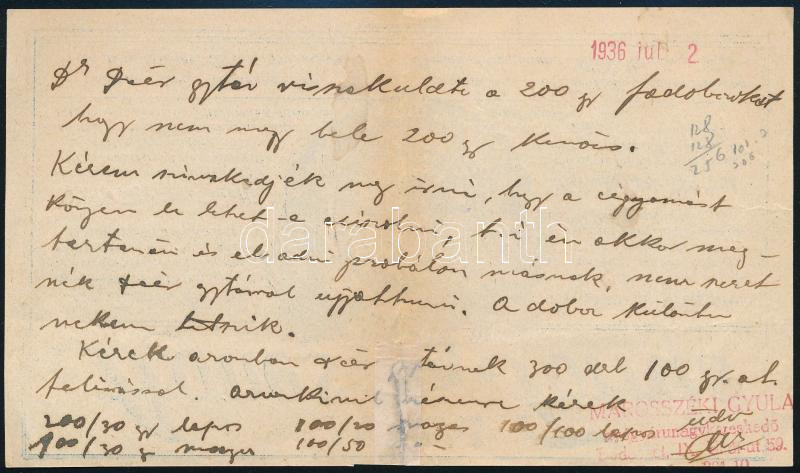 1936 júl 2
Dr Deér gytár visszaküldte a 200 gr fadobozokat
hogy nem megy bele 200 gr kenőcs.
128
128
256
Kérem szíveskedjék meg írni, hogy a cégnyomást
közpen le lehet-e csiszolni, t.i. én akkor meg-
tartanám és eladni próbálom másnak, nem szeret
nék Deér gytárral ujjat húzni. A doboz különben
nekem tetszik.
Kérek azonban Deér gytárnak 300 drb 100 gr. at.
felírással. azonkívül részemre kérek
200/30 gr lapos 100/20 magas 100/100 lapos üdv
100/30 gr magas 100/50
MAROSSZÉKI GYULA